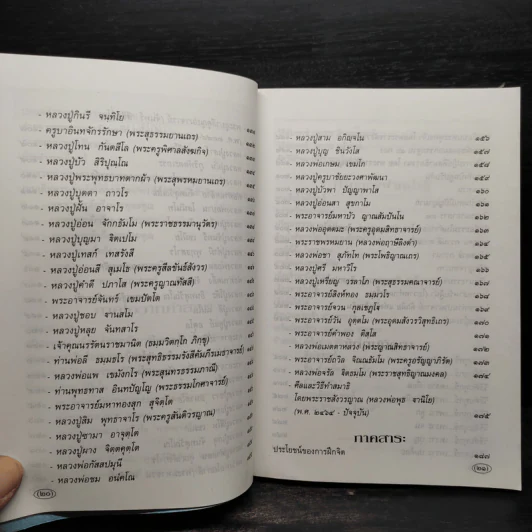 - หลวงปู่กินรี จนฺทิโย
- ครูบาอินทจักรรักษา (พระสุธรรมยานเถร)
- หลวงปู่โทน กนฺตสีโล (พระครูพิศาลสังฆกิจ)
- หลวงปู่บัว สิริปุณฺโณ
- หลวงปู่พระพุทธบาทตากผ้า (พระสุพรหมยานเถร)
- หลวงปู่บุดดา ถาวโร
- หลวงปู่ฝั้น อาจาโร
- หลวงปู่อ่อน จักกธัมโม (พระราชธรรมานุวัตร)
- หลวงปู่บุญมา จิตเปโม
- หลวงปู่เทสก์ เทสรังสี
- หลวงปู่อ่อนสี สุเมโธ (พระครูสีลขันธ์สังวร)
- หลวงปู่คำดี ปภาโส (พระครูญาณทัสสี)
- พระอาจารย์จันทร์ เขมปัตโต
- หลวงปู่ชอบ ฐานสโม
- หลวงปู่หลุย จันทสาโร
- เจ้าคุณนรรัตนราชมานิต (ธมฺมวิตกฺโก ภิกขุ)
- ท่านพ่อลี ธมฺมธโร (พระสุทธิธรรมรังสีคัมภีรเมธาจารย์)
- หลวงพ่อแพ เขมังกโร (พระสุนทรธรรมภาณี)
- ท่านพุทธทาส อินทปัญโญ (พระธรรมโกศาจารย์)
- พระอาจารย์มหาทองสุก สุจิตฺโต
- หลวงปู่สิม พุทธาจาโร (พระครูสันติวรญาณ)
- หลวงปู่ชามา อาจุตฺโต
- หลวงปู่ผาง จิตฺตคุตฺโต
- หลวงพ่อกัสสปมุนี
- หลวงพ่อชม อนังคโณ
(๒๐)
- หลวงปู่สาม อกิญฺจโน ๑๕๖
- หลวงปู่บุญ ชินวังโส ๑๕๗
- หลวงพ่อเกษม เขมโก ๑๕๘
- หลวงปู่ครูบาชัยยะวงศาพัฒนา ๑๕๙
- หลวงปู่บัวพา ปัญญาพาโส ๑๖๐
- หลวงปู่อ่อนสา สุขกาโม ๑๖๑
- พระอาจารย์มหาบัว ญาณสัมปันโน ๑๖๒
- หลวงพ่ออุตตมะ (พระครูอุดมสิทธาจารย์) ๑๖๓
- พระราชพรหมยาน (หลวงพ่อฤๅษีลิงดำ) ๑๖๔
- หลวงพ่อชา สุภัทโท (พระโพธิญาณเถร) ๑๖๕
- หลวงปู่ศรี มหาวีโร ๑๖๖
- หลวงปู่เหรียญ วรลาโภ (พระสุธรรมคณาจารย์)
- พระอาจารย์สิงห์ทอง ธมฺมวโร
- พระอาจารย์จวน กุลเชฏฺโฐ
- พระอาจารย์วัน อุตฺตโม (พระอุดมสังวรวิสุทธิเถร)
- พระอาจารย์คำพอง ติสโส
- หลวงพ่อเมตตาหลวง (พระญาณสิทธาจารย์)
- พระอาจารย์ถวิล จิณณธัมโม (พระครูอรัญญาภิรัต)
- หลวงพ่อจรัล ฐิตธมฺโม (พระราชสุทธิญาณมงคล)
ศีลและวิธีทำสมาธิ
โดยพระราชสังวรญาณ (หลวงพ่อพุธ ฐานิโย)
(พ.ศ. ๒๔๖๔ - ปัจจุบัน) ๑๘๕
ภาคสาระ
ประโยชน์ของการฝึกจิต ๑๘๗
(๒๑)